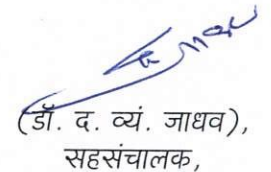 (डॉ. द. व्यं. जाधव),
सहसंचालक,